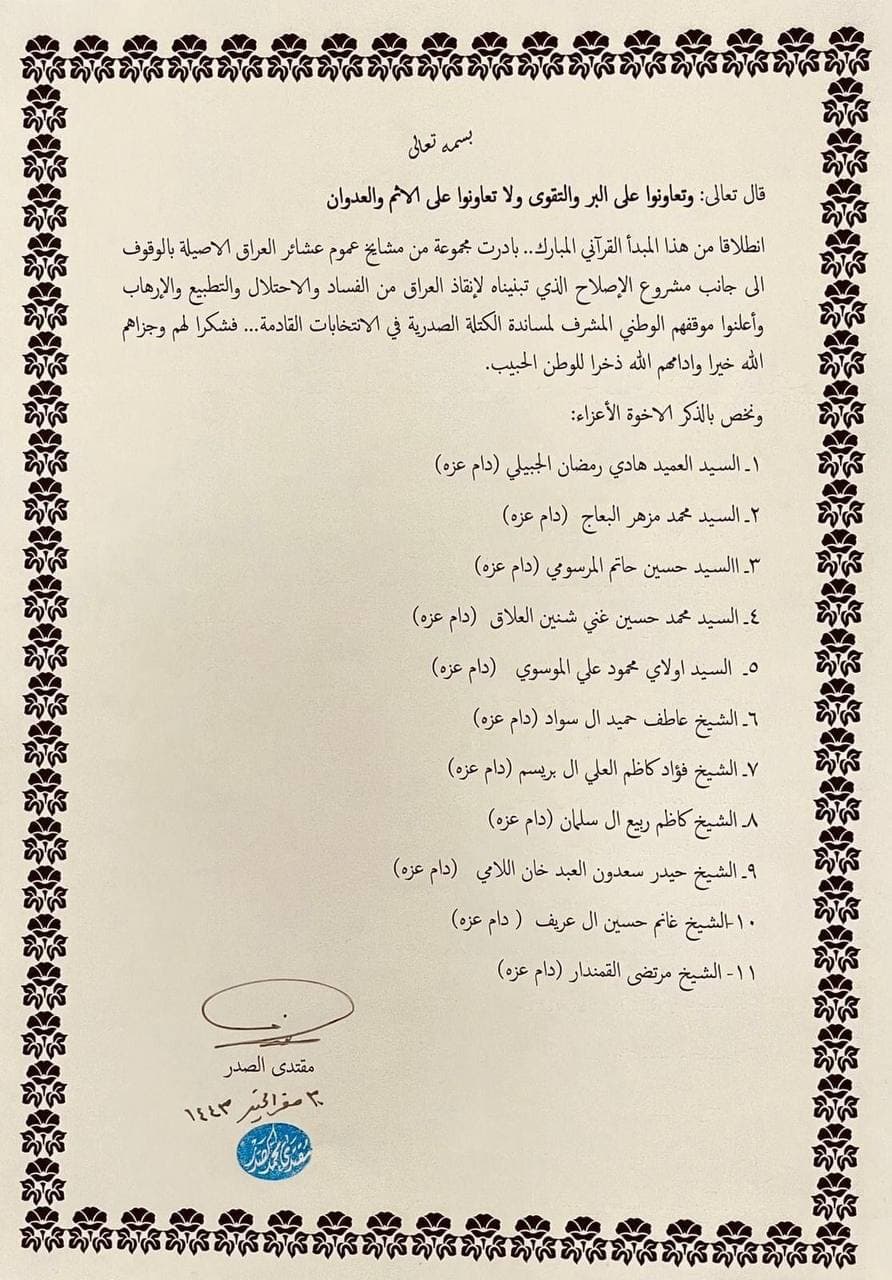 بسمه تعالى
قال تعالى: وتعاونوا على البر والتقوى ولا تعاونوا على الاثم والعدوان
انطلاقا من هذا المبدأ القرآني المبارك.. بادرت مجموعة من مشايخ عموم عشائر العراق الاصيلة بالوقوف
الى جانب مشروع الإصلاح الذي تبنيناه لإنقاذ العراق من الفساد والاحتلال والتطبيع والإرهاب
وأعلنوا موقفهم الوطني المشرف لمساندة الكتلة الصدرية في الانتخابات القادمة... فشكرا لهم وجزاهم
الله خيرا وادامهم الله ذخرا للوطن الحبيب.
ونخص بالذكر الاخوة الأعزاء:
١ـ السيد العميد هادي رمضان الجبيلي (دام عزه)
٢ـ السيد محمد مزهر البعاج (دام عزه)
٣ـ االسيد حسين حاتم المرسومي (دام عزه)
٤ـ السيد محمد حسين غني شنين العلاق (دام عزه)
٥ـ السيد اولاي محمود علي الموسوي (دام عزه)
٦ـ الشيخ عاطف حميد ال سواد (دام عزه)
٧ـ الشيخ فؤاد كاظم العلي ال بريسم (دام عزه)
٨ـ الشيخ كاظم ربيع ال سلمان (دام عزه)
٩ـ الشيخ حيدر سعدون العبد خان اللامي (دام عزه)
١٠-الشيخ غانم حسين ال عريف ( دام عزه)
١١- الشيخ مرتضى القمندار (دام عزه)
مقتدى الصدر
صفر الخير ١٤٤٣
مقتدى محمد الصدر